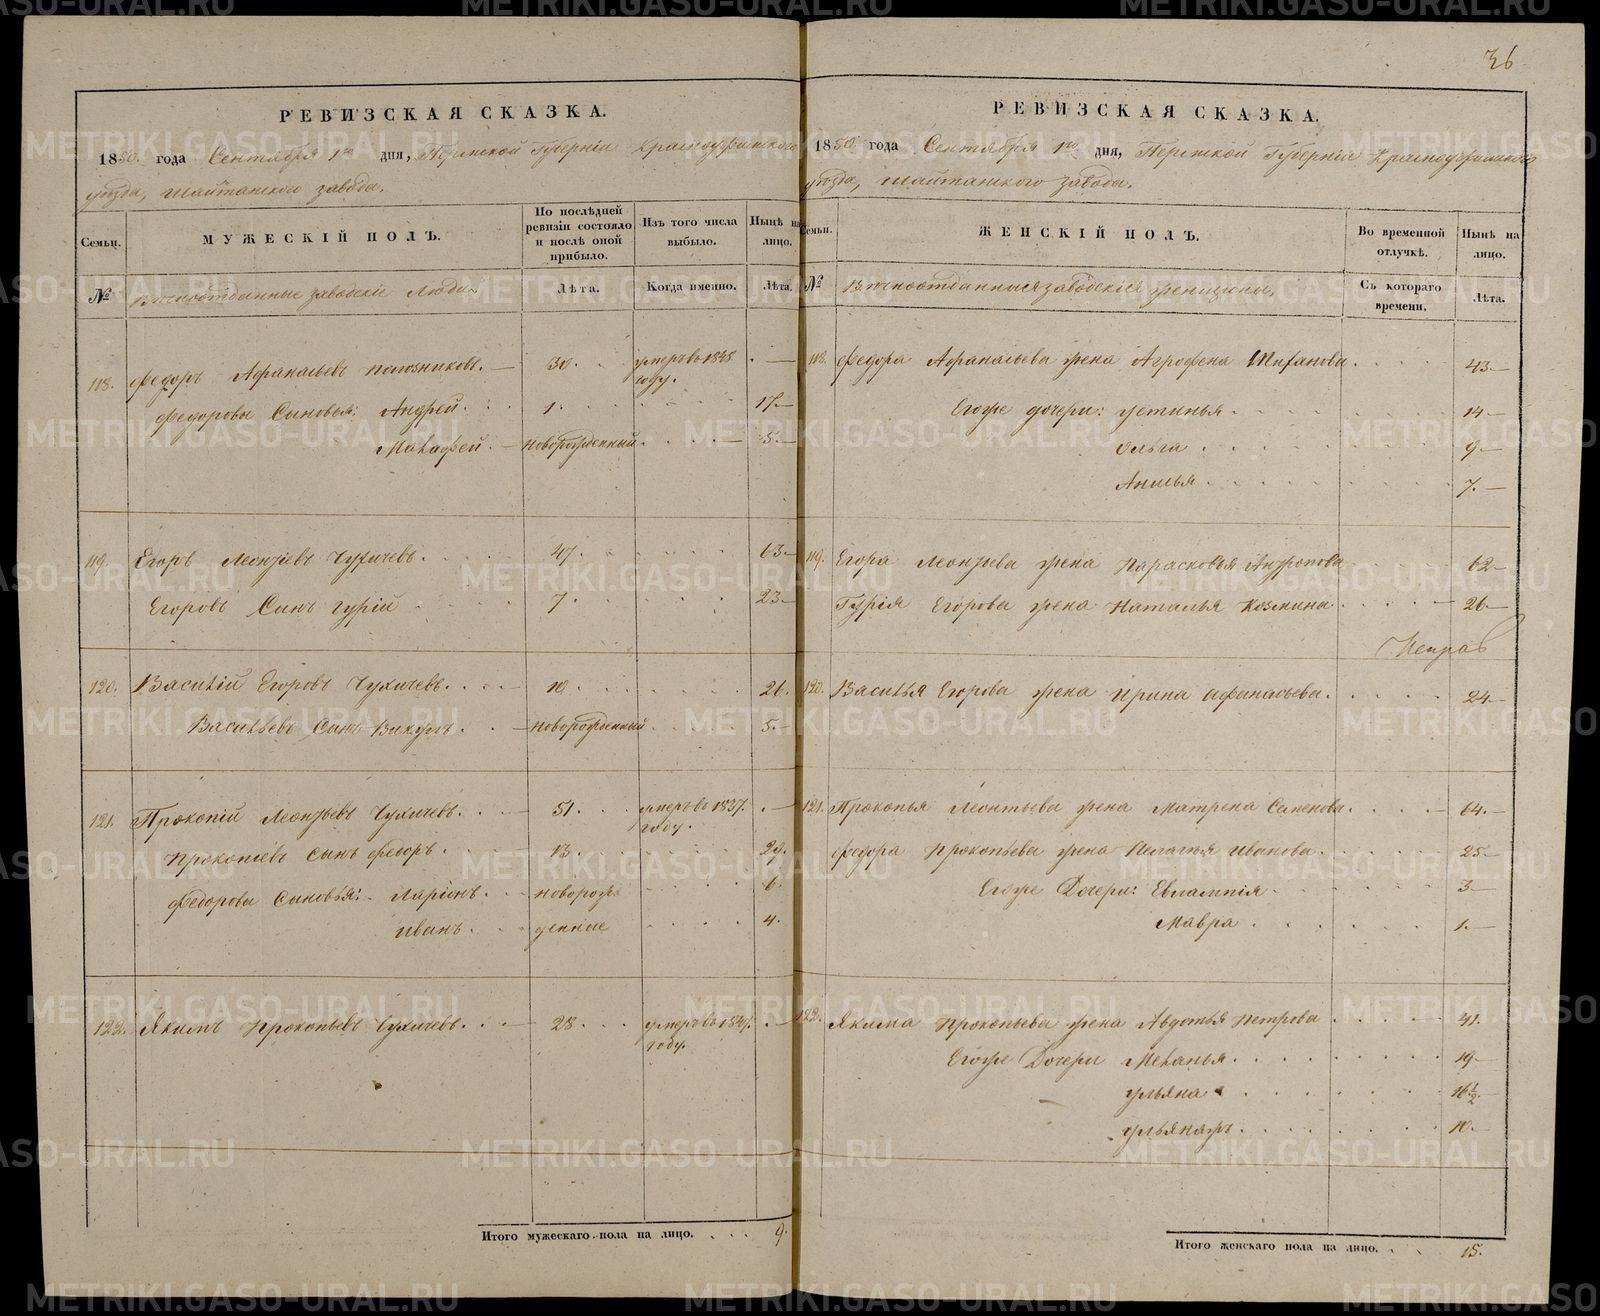 36
РЕВИЗСКАЯ СКАЗКА.
1850. года Сентября 1го дня, Пермской Губерніи Красноуфимского
уѣзда, Шайтанского завода.
Семьи.
МУЖЕСКІЙ ПОЛЪ.
По послѣдней ревизіи состояло и послѣ оной прибыло.
Изъ того числа выбыло.
Нынѣ на лицо.
№
Вѣчноотданные заводскіе Люди.
Лѣта.
Когда именно.
Лѣта.
118. Федоръ Афанасьевъ 30. умеръ въ 1848 году. —
Федоровы Сыновья: Андрей. 1. 17.—
новорожденный 5.—
119. Егоръ Леонтьевъ Чухичевъ. 47. 63.—
Егоровъ Сынъ Гурій 7. 23.—
120. Василій Егоровъ Чухичевъ. 10. 26.
Васильевъ Сынъ Викулъ. новорожденный 5.—
121. Прокопій Леонтьевъ Чухичевъ. 51. умеръ въ 1837. году. —
Прокопіевъ Сынъ Федоръ. 13. 29.
Федоровы Сыновья: Ларіонъ. новорож 6.
Иванъ. денные 4.
122. Якимъ Прокопьевъ Чухичевъ. 28. умеръ въ году. —
Итого мужескаго пола на лицо. 9.
РЕВИЗСКАЯ СКАЗКА.
1850. года Сентября 1го дня, Пермской Губерніи Красноуфимского
уѣзда, Шайтанского завода.
Семьи.
ЖЕНСКІЙ ПОЛЪ.
Во временной отлучкѣ.
Нынѣ на лицо.
№
Вѣчноотданныя заводскія женщины.
Съ котораго времени.
Лѣта.
118. Федора Афанасьева жена Агрофена 43.—
Егоже дочери: Устинья 14—
Ольга 9—
Анисья 7.—
119. Егора Леонтьева жена Парасковья Антропова 62—
Гурія Егорова жена Наталья Козмина 26.—
120. Василья Егорова жена Ирина Афанасьева. 24.—
121. Прокопья Леонтьева жена Матрена Семенова. 64.—
Федора Прокопьева жена Пелагья Иванова. 25—
Егоже Дочери: Евлампія 3—
Мавра 1.—
122. Якима Прокопьева жена Авдотья Петрова 41.
Егоже Дочери Меланья. 19.—
Ульяна 16½.
10.—
Итого женскаго пола на лицо. 15.
METRIKI.GASO-URAL.RU